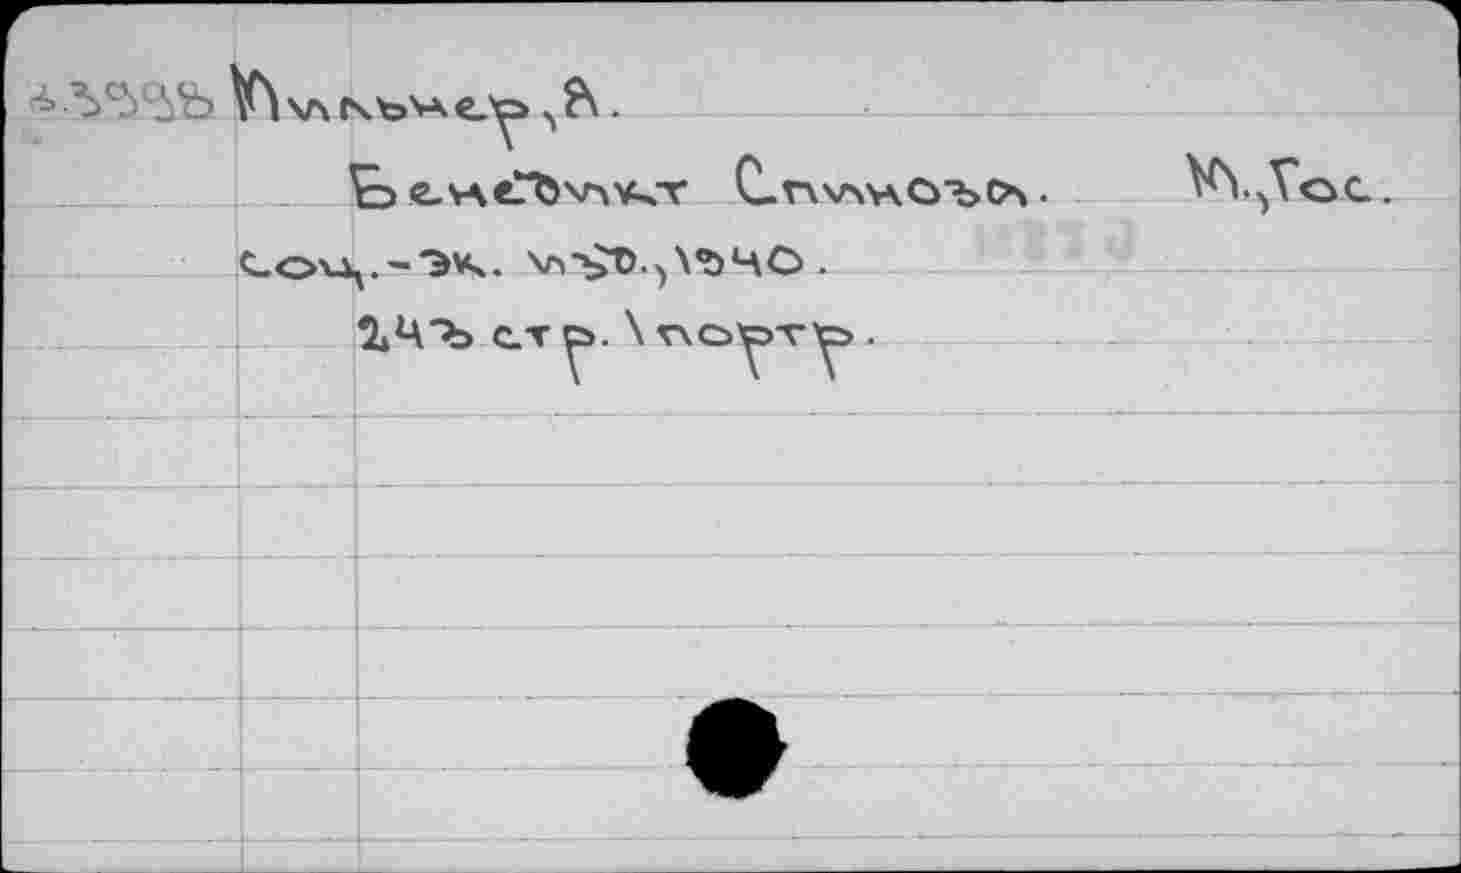 Мильнер, Я.
Бенедикт Спиноза. М., Гос.
соц.-эк. изд., 1940.
243 стр. 1 портр.